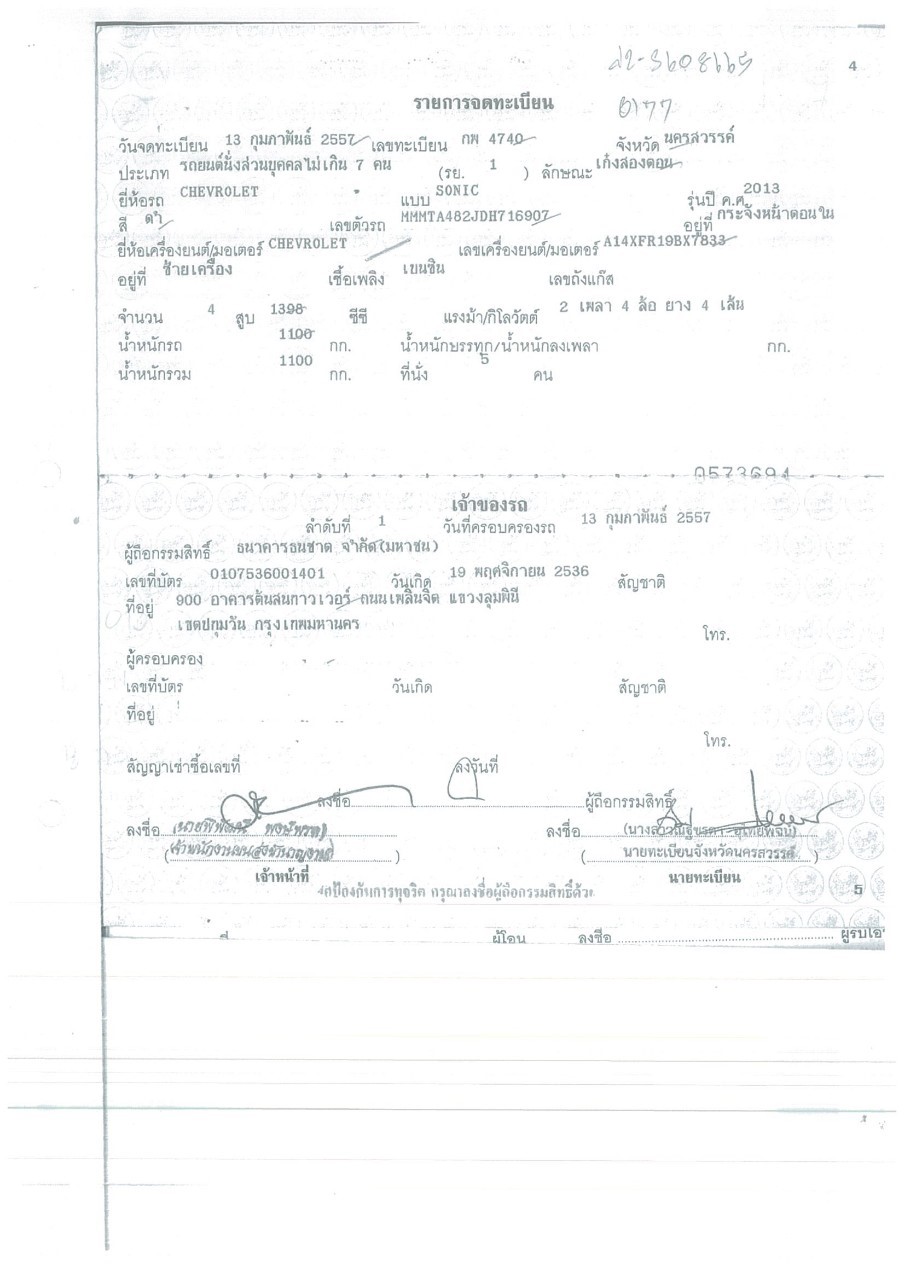 4
รายการจดทะเบียน
0177
วันจดทะเบียน 13 กุมภาพันธ์ 2557 เลขทะเบียน กพ 4740 จังหวัด นครสวรรค์
ประเภท รถยนต์นั่งส่วนบุคคลไม่เกิน 7 คน (รย. 1 ) ลักษณะ เก๋งสองตอน
ยี่ห้อรถ CHEVROLET แบบ SONIC รุ่นปี ค.ศ. 2013
สี ดำ เลขตัวรถ MMMTA482JDH716907 อยู่ที่ กระจังหน้าตอนใน
ยี่ห้อเครื่องยนต์/มอเตอร์ CHEVROLET เลขเครื่องยนต์/มอเตอร์ A14XFR19BX7833
อยู่ที่ ซ้ายเครื่อง เชื้อเพลิง เบนซิน เลขถังแก๊ส
จำนวน 4 สูบ 1398 ซีซี แรงม้า/กิโลวัตต์ 2 เพลา 4 ล้อ ยาง 4 เส้น
น้ำหนักรถ 1100 กก. น้ำหนักบรรทุก/น้ำหนักลงเพลา กก.
น้ำหนักรวม 1100 กก. ที่นั่ง 5 คน
0573694
เจ้าของรถ
ลำดับที่ 1 วันที่ครอบครองรถ 13 กุมภาพันธ์ 2557
ผู้ถือกรรมสิทธิ์ ธนาคารธนชาต จำกัด(มหาชน)
เลขที่บัตร 0107536001401 วันเกิด 19 พฤศจิกายน 2536 สัญชาติ
ที่อยู่ 900 อาคารต้นสนทาวเวอร์ ถนนเพลินจิต แขวงลุมพินี
เขตปทุมวัน กรุงเทพมหานคร
โทร.
ผู้ครอบครอง
เลขที่บัตร วันเกิด สัญชาติ
ที่อยู่
โทร.
สัญญาเช่าซื้อเลขที่ ลงวันที่
ลงชื่อ ผู้ถือกรรมสิทธิ์
ลงชื่อ ลงชื่อ
( ) ( นายทะเบียนจังหวัดนครสวรรค์ )
เจ้าหน้าที่ นายทะเบียน
ป้องกันการทุจริต กรุณาลงชื่อผู้ถือกรรมสิทธิ์ด้วย
5
ผู้โอน ลงชื่อ ผู้รับโอ